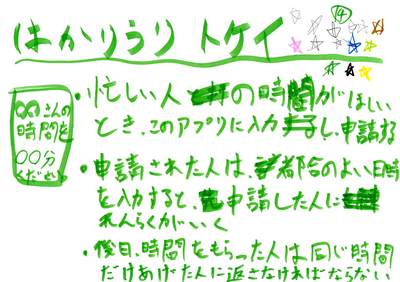 はかりうり トケイ
14
∞さんの
時間を
〇〇分
ください
・忙しい人の時間がほしい
とき、このアプリに入力し、申請する
・申請された人は、都合のよい日時
を入力すると、申請した人に
れんらくがいく
・後日、時間をもらった人は同じ時間
だけあげた人に返さなければならない